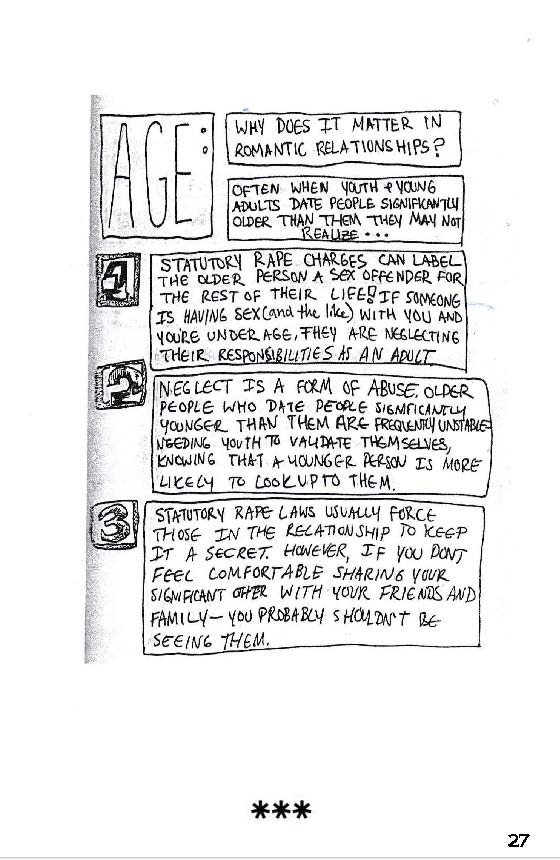 AGE:
WHY DOES IT MATTER IN
ROMANTIC RELATIONSHIPS?
OFTEN WHEN YOUTH & YOUNG
ADULTS DATE PEOPLE SIGNIFICANTLY
OLDER THAN THEM THEY MAY NOT
REALIZE...
1
STATUTORY RAPE CHARGES CAN LABEL
THE OLDER PERSON A SEX OFFENDER FOR
THE REST OF THEIR LIFE! IF SOMEONE
IS HAVING SEX (and the like) WITH YOU AND
YOU'RE UNDER AGE, THEY ARE NEGLECTING
THEIR RESPONSIBILITIES AS AN ADULT.
2
NEGLECT IS A FORM OF ABUSE. OLDER
PEOPLE WHO DATE PEOPLE SIGNIFICANTLY
YOUNGER THAN THEM ARE FREQUENTLY UNSTABLE-
NEEDING YOUTH TO VALIDATE THEMSELVES,
KNOWING THAT A YOUNGER PERSON IS MORE
LIKELY TO LOOK UP TO THEM.
3
STATUTORY RAPE LAWS USUALLY FORCE
THOSE IN THE RELATIONSHIP TO KEEP
IT A SECRET. HOWEVER, IF YOU DON'T
FEEL COMFORTABLE SHARING YOUR
SIGNIFICANT OTHER WITH YOUR FRIENDS AND
FAMILY—YOU PROBABLY SHOULDN'T BE
SEEING THEM.
***
27